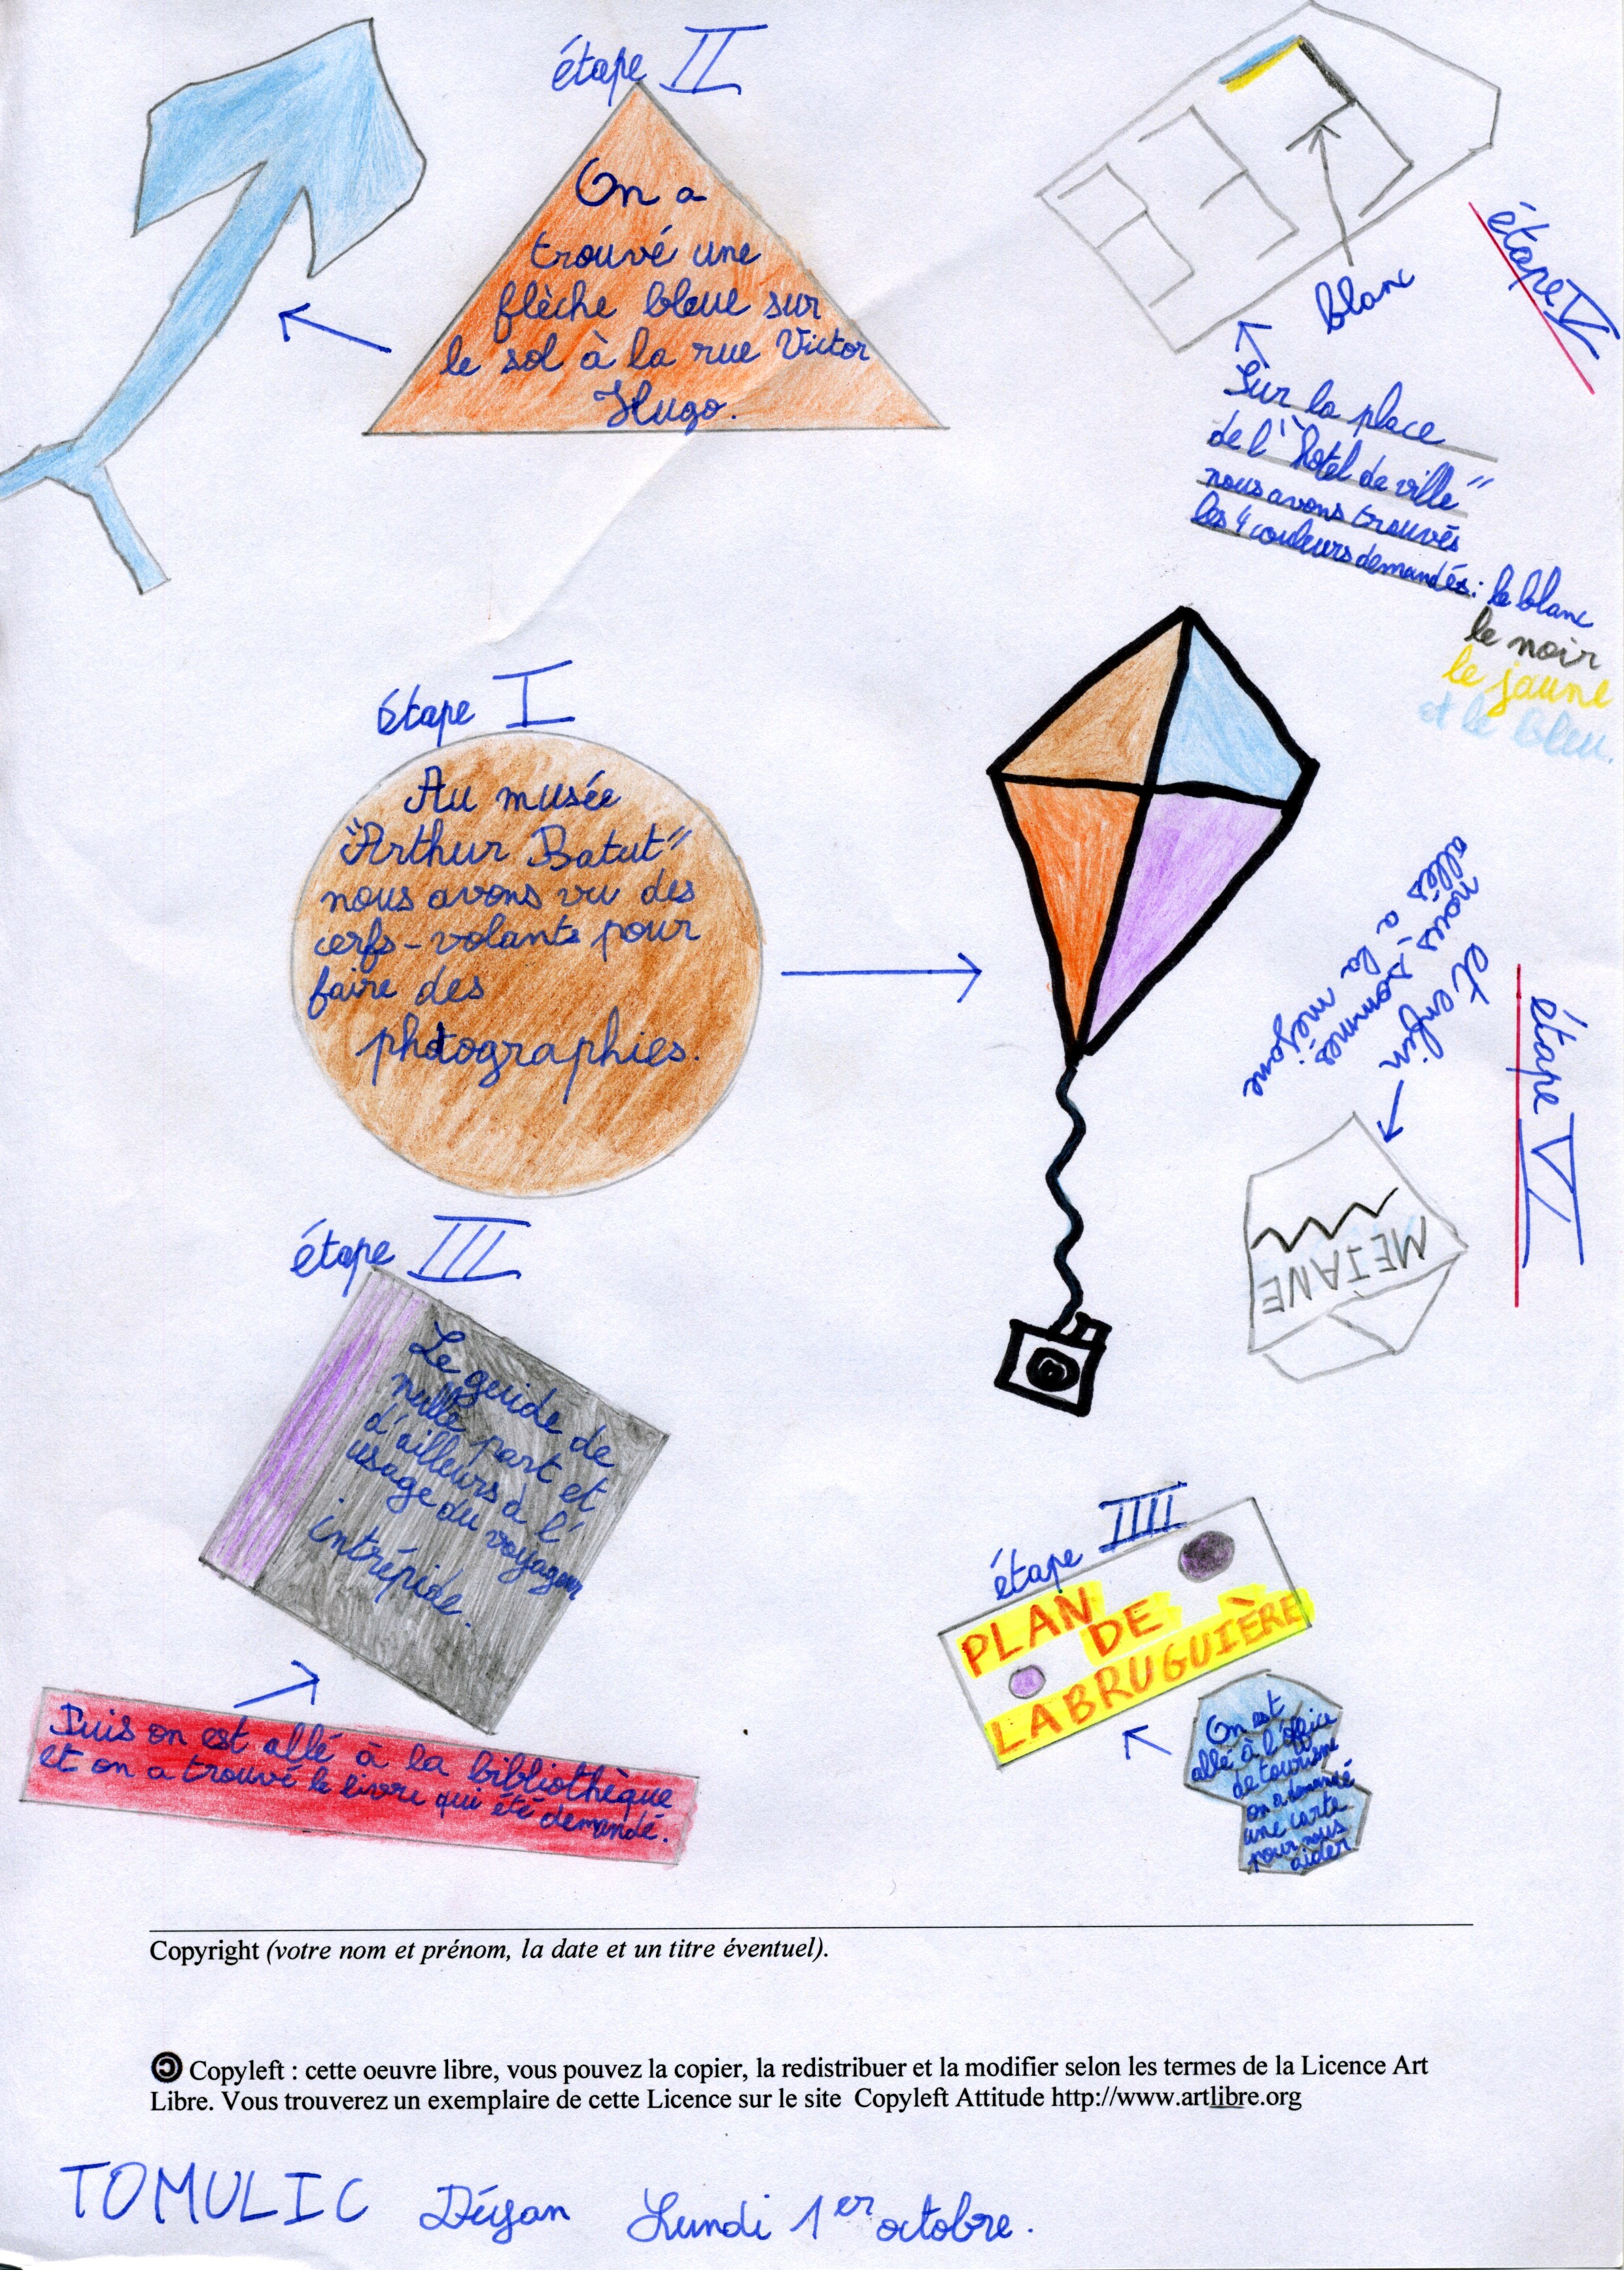 étape II
On a
trouvé une
flèche bleue sur
le sol à la rue Victor
Hugo.
étape V
blanc
Sur la place
de l'"hotel de ville"
nous avons trouvés
les 4 couleurs demandés : le blanc
le noir
le jaune
et le bleu.
étape I
Au musée
"Arthur Batut"
nous avons vu des
cerfs-volants pour
faire des
photographies.
étape VI
et enfin
nous sommes
allés a la méjane
MEJANE
étape III
Le guide de
nulle part et
d'ailleurs à l'
usage du voyageur
intrépide.
Puis on est allé à la bibliothèque
et on a trouvé le livre qui été demandé.
étape IIII
PLAN
DE
LABRUGUIÈRE
On est
allé à l'office
de tourisme
on a demandé
une carte
pour nous
aider
Copyright (votre nom et prénom, la date et un titre éventuel).
Copyleft : cette oeuvre libre, vous pouvez la copier, la redistribuer et la modifier selon les termes de la Licence Art
Libre. Vous trouverez un exemplaire de cette Licence sur le site Copyleft Attitude http://www.artlibre.org
TOMULIC Déyan Lundi 1er octobre.